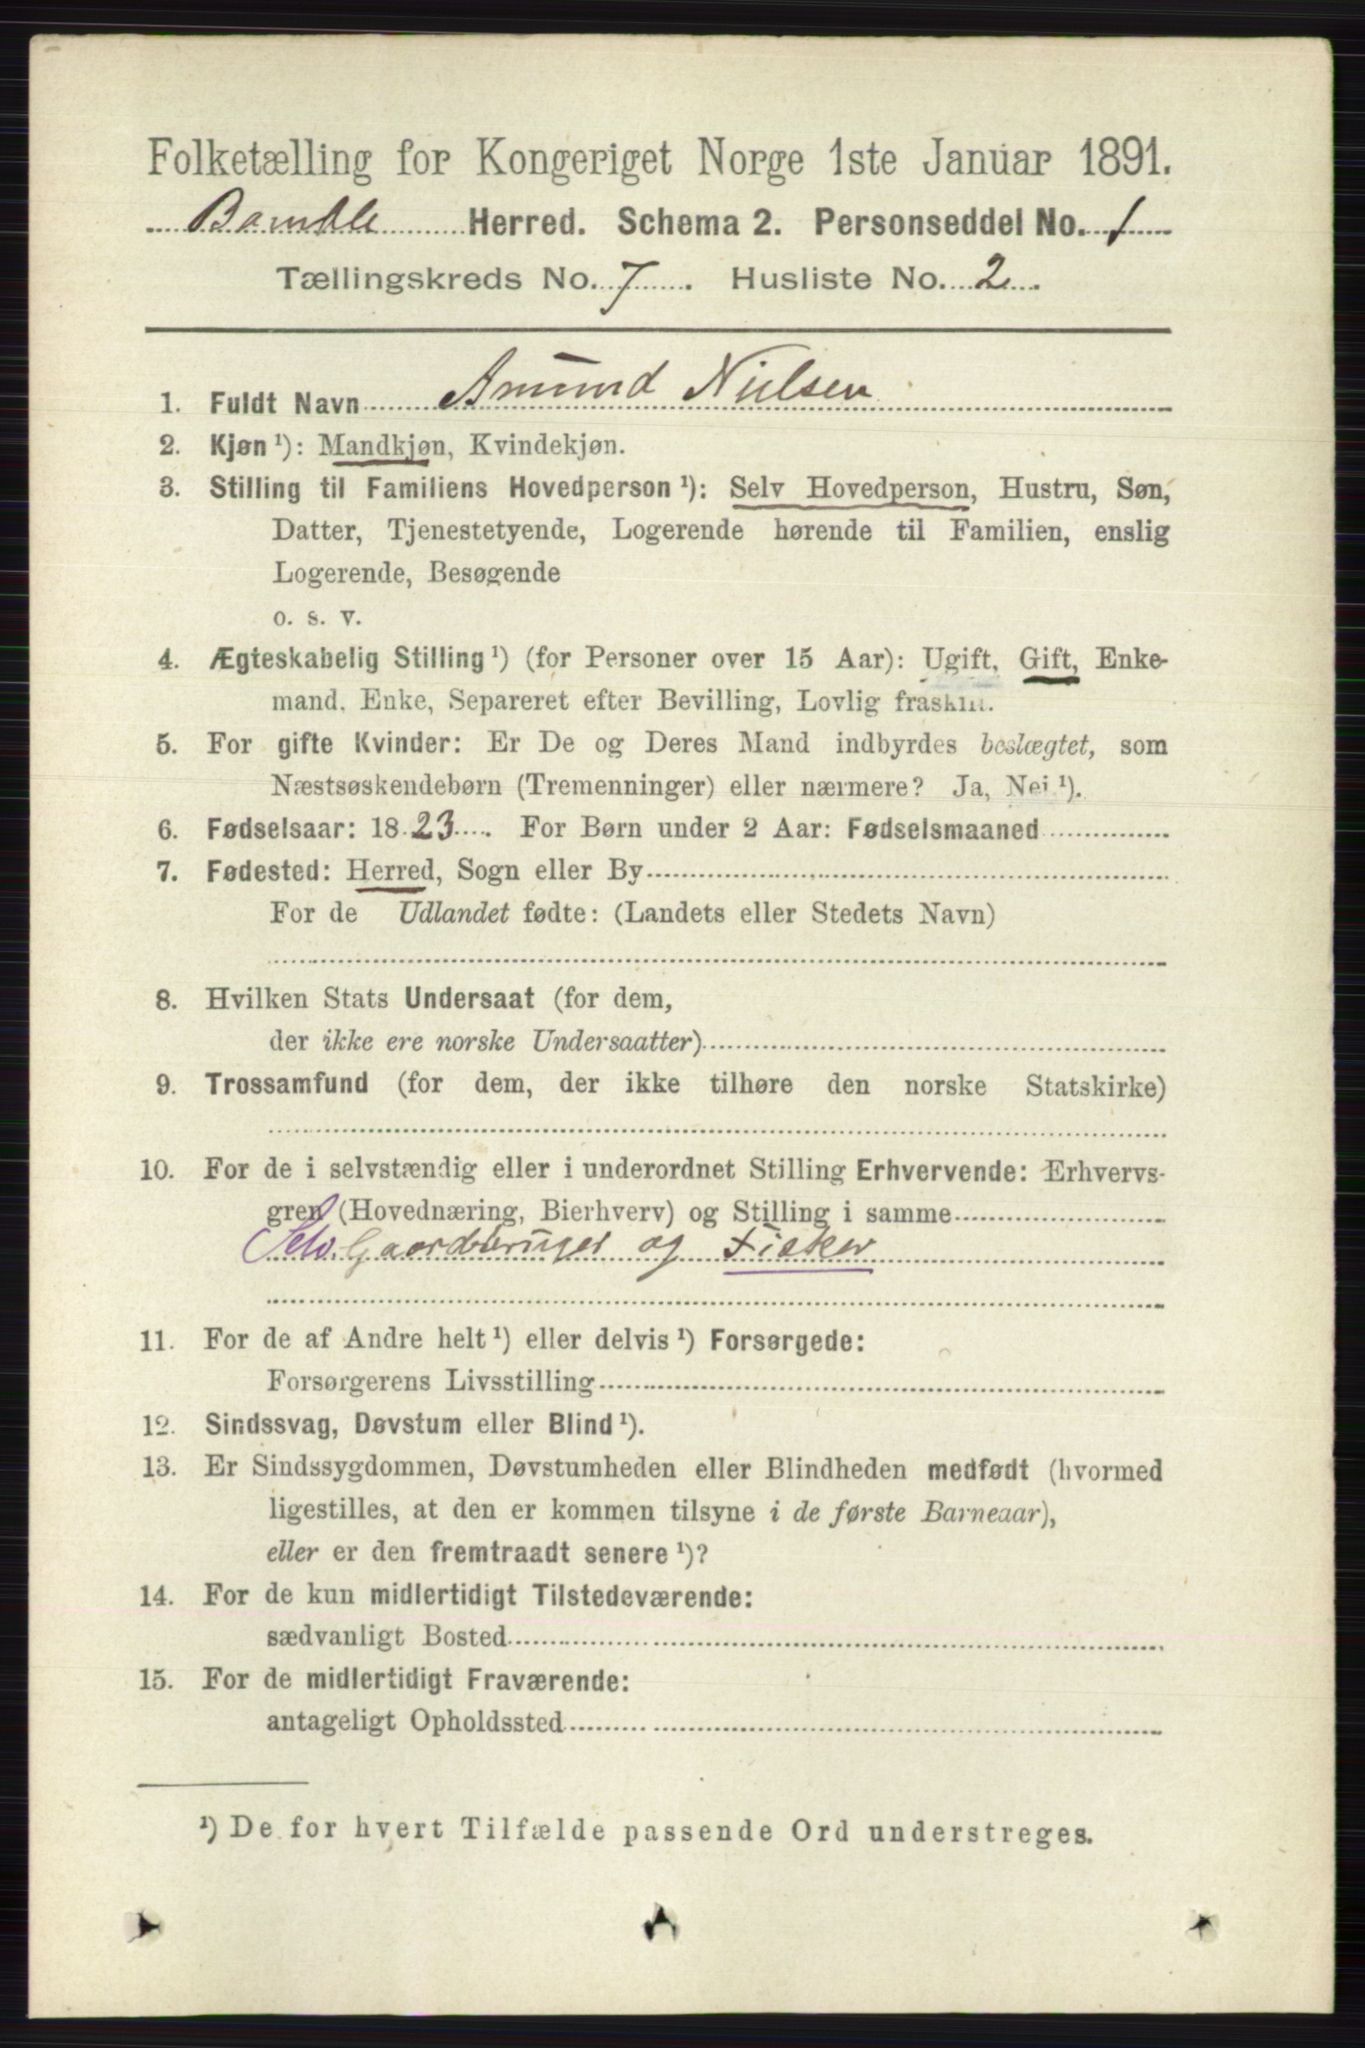 Folketælling for Kongeriget Norge 1ste Januar 1891.
Bamble Herred. Schema 2. Personseddel No. 1
Tællingskreds No. 7. Husliste No. 2.
1. Fuldt Navn Amund Nielsen
2. Kjøn ¹): Mandkjøn, Kvindekjøn.
3. Stilling til Familiens Hovedperson ¹): Selv Hovedperson, Hustru, Søn,
Datter, Tjenestetyende, Logerende hørende til Familien, enslig
Logerende, Besøgende
o. s. v.
4. Ægteskabelig Stilling ¹) (for Personer over 15 Aar): Ugift, Gift, Enke-
mand, Enke, Separeret efter Bevilling, Lovlig fraskilt.
5. For gifte Kvinder: Er De og Deres Mand indbyrdes beslægtet, som
Næstsøskendebørn (Tremenninger) eller nærmere? Ja, Nei ¹).
6. Fødselsaar: 1823. For Børn under 2 Aar: Fødselsmaaned
7. Fødested: Herred, Sogn eller By
For de Udlandet fødte: (Landets eller Stedets Navn)
8. Hvilken Stats Undersaat (for dem,
der ikke ere norske Undersaatter)
9. Trossamfund (for dem, der ikke tilhøre den norske Statskirke)
10. For de i selvstændig eller i underordnet Stilling Erhvervende: Erhvervs-
gren (Hovednæring, Bierhverv) og Stilling i samme
Selv. Gaardbruger og Fisker
11. For de af Andre helt ¹) eller delvis ¹) Forsørgede:
Forsørgerens Livsstilling
12. Sindssvag, Døvstum eller Blind ¹).
13. Er Sindssygdommen, Døvstumheden eller Blindheden medfødt (hvormed
ligestilles, at den er kommen tilsyne i de første Barneaar),
eller er den fremtraadt senere ¹)?
14. For de kun midlertidigt Tilstedeværende:
sædvanligt Bosted
15. For de midlertidigt Fraværende:
antageligt Opholdssted
¹) De for hvert Tilfælde passende Ord understreges.